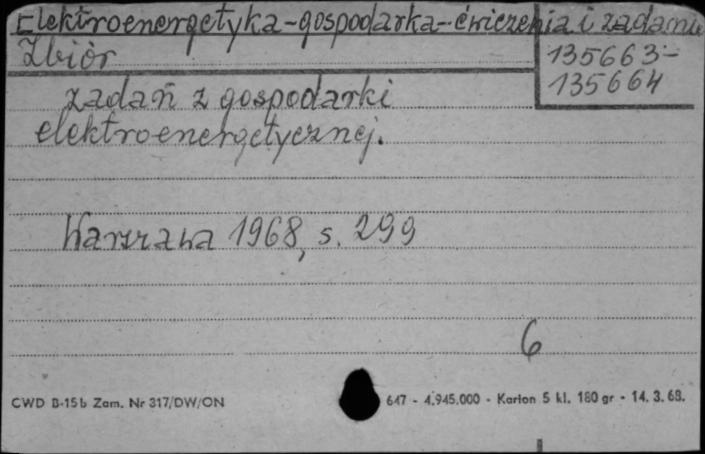 Elektroenergetyka-gospodarka-ćwiczenia i zadania
Zbiór
135663-
135664
zadań z gospodarki
elektroenergetycznej.
Warszawa 1968, s. 299
6
CWD B-15b Zam. Nr 317/DW/ON
647 - 4.945.000 - Karton 5 kl. 180 gr - 14. 3. 68.